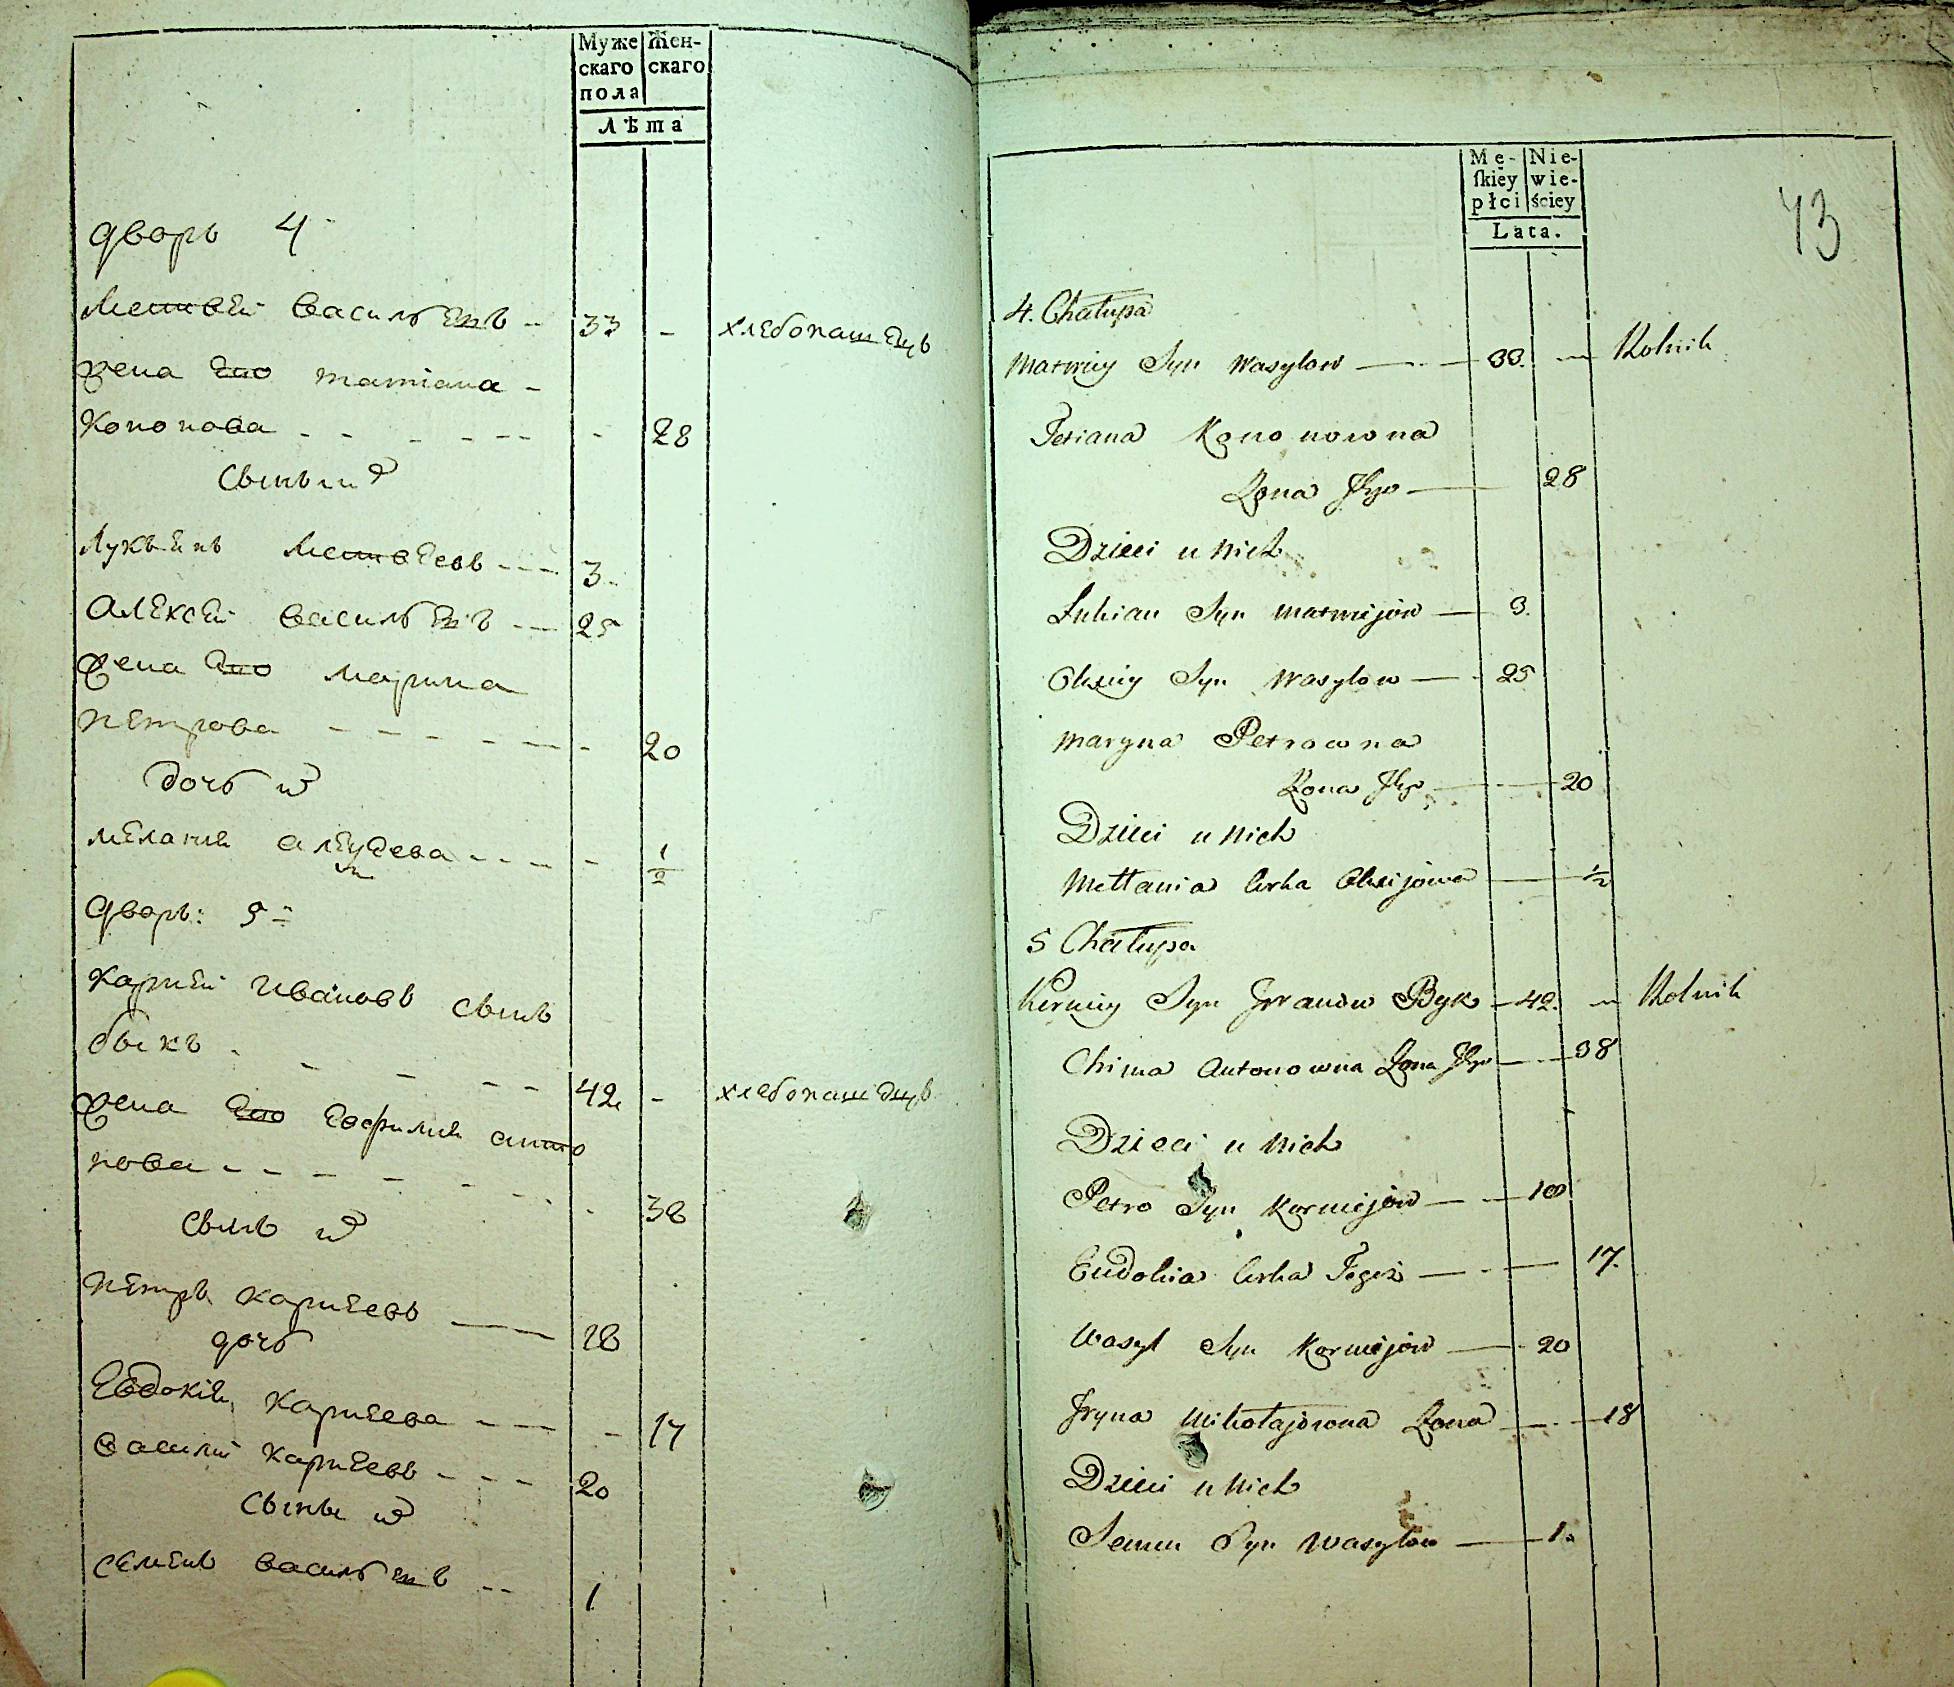 Муже
скаго
пола
Жен-
скаго
Лѣта
дворъ 4
Матвей васильевъ - 33 - хлебопашецъ
жена его татиана -
Кононова - - - - - - - 28
Сынъ их
Лукьянъ Матвеевъ - - - 3
Алексей васильевъ - - 25
жена его марина
Петрова - - - - - - 20
дочь их
мелания алексеева - - - - 1/2
дворъ: 5
Карпей Ивановъ сынъ
быкъ - - - - - 42 - хлебопашецъ
жена его Евфимия анто
нова - - - - - - - 38
Сынъ их
Петръ Карпеевъ — 18
дочь
Евдокия Карпеева - - - 17
василий Карпеевъ - - - 20
Сынъ их
семенъ васильевъ - - 1
Mę-
ſkiey
płci
Nie-
wie-
ściey
Lata.
43
4. Chałupa
Matwiy Syn Wasylow — 33. — Rolnik
Tetiana Kononowna
Zona Jego — 28
Dzieci u nich
Lukian Syn Matwijów — 3.
Olexiy Syn Wasylow — 25
Maryna Petrowna
Zona Jego — 20
Dzieci u nich
Mełłania Corka Olexijowa — 1/2
5 Chałupa
Kormiy Syn Jwanow Byk — 42. — Rolnik
Chima Antonowna Zona Jego — 38
Dzieci u nich
Petro Syn Kormijów — 18
Eudokia Corka Tegoż — 17.
Wasyl Syn Kormijów — 20
Jryna Mikołajowna Zona — 18
Dzieci u nich
Semen Syn Wasylow — 1.